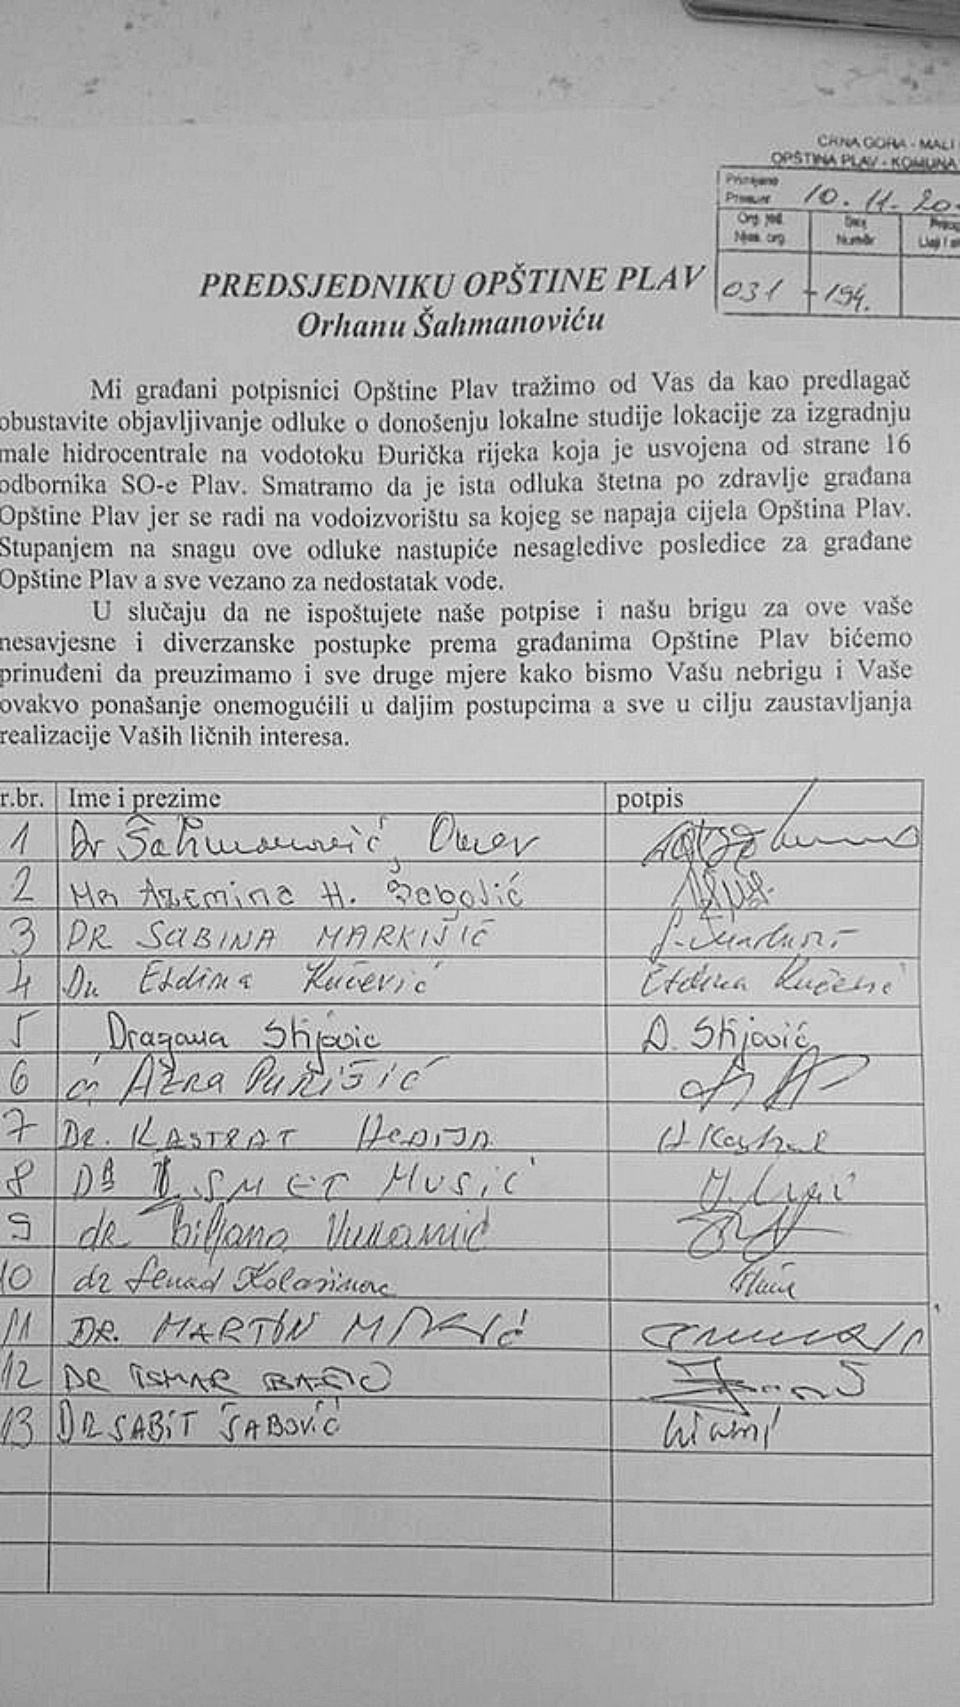 CRNA GORA - MALI
OPŠTINA PLAV - KOMUNA
Primljeno
Pranuar
10. 11. 20
Org. jed.
Njes. org.
Broj
Numër
031 - 194.
PREDSJEDNIKU OPŠTINE PLAV
Orhanu Šahmanoviću
Mi građani potpisnici Opštine Plav tražimo od Vas da kao predlagač
obustavite objavljivanje odluke o donošenju lokalne studije lokacije za izgradnju
male hidrocentrale na vodotoku Đurička rijeka koja je usvojena od strane 16
odbornika SO-e Plav. Smatramo da je ista odluka štetna po zdravlje građana
Opštine Plav jer se radi na vodoizvorištu sa kojeg se napaja cijela Opština Plav.
Stupanjem na snagu ove odluke nastupiće nesagledive posledice za građane
Opštine Plav a sve vezano za nedostatak vode.
U slučaju da ne ispoštujete naše potpise i našu brigu za ove vaše
nesavjesne i diverzanske postupke prema građanima Opštine Plav bićemo
prinuđeni da preuzimamo i sve druge mjere kako bismo Vašu nebrigu i Vaše
ovakvo ponašanje onemogućili u daljim postupcima a sve u cilju zaustavljanja
realizacije Vaših ličnih interesa.
r.br. Ime i prezime potpis
1 Dr Šahmanović, Omer
2 Mr Azemina H. Šabović
3 DR SABINA MARKIŠIĆ
4 Dr Eldina Kučević Eldina Kučević
5 Dragana Stijovic D. Stijović
6 AZRA PURIŠIĆ
7 DR. KASTRAT HEDIJA H Kastrat
8 DR ISMET MUSIĆ
9 dr Biljana Vunamić
10 dr Senad Kolašinac
11 DR. MARTIN
12 DR ISMAR BAŠIĆ
13 DR SABIT ŠABOVIĆ